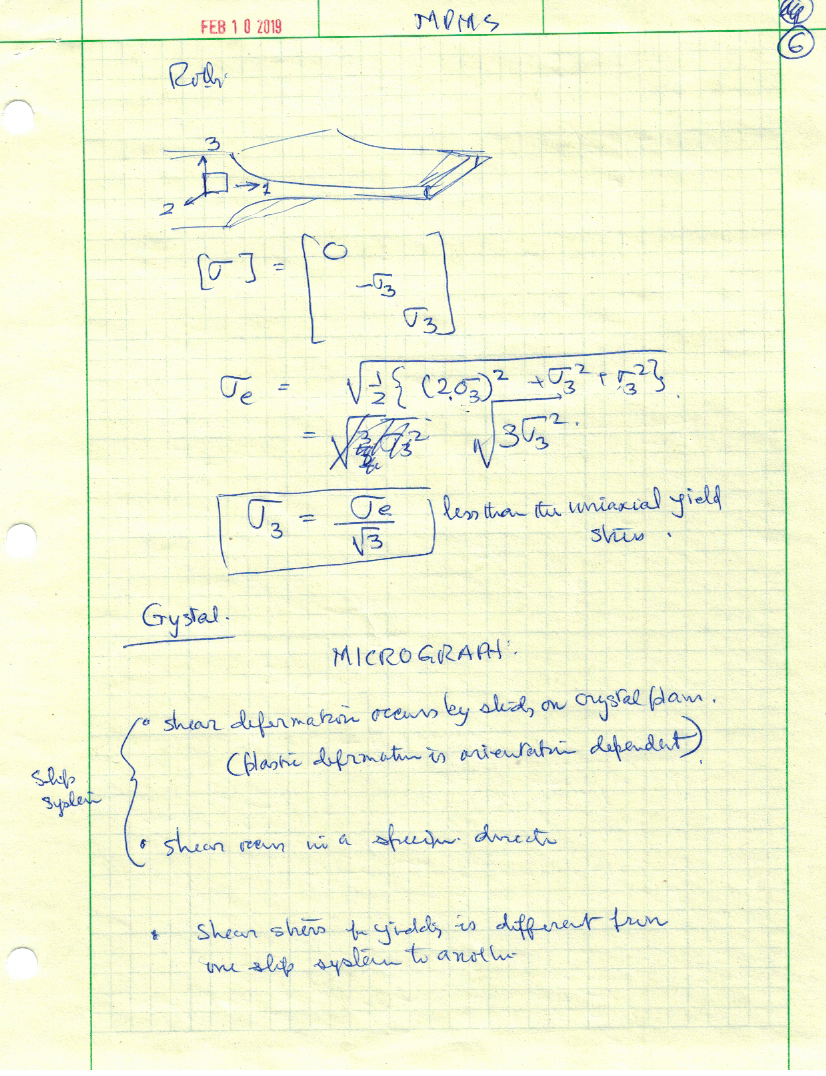 FEB 10 2019
MPMS
6
3
1
2
[σ] = [ 0
-σ3
σ3 ]
σe = √ 1/2 { (2σ3)² + σ3² + σ3² }
= √ 3σ3²
σ3 = σe / √3 less than the uniaxial yield
stress .
Crystal.
MICROGRAPH.
• shear deformation occurs by sliding on crystal plane.
(plastic deformation is orientation dependent).
slip
system
• shear occurs in a specific direction
• Shear stress for yielding is different from
one slip system to another